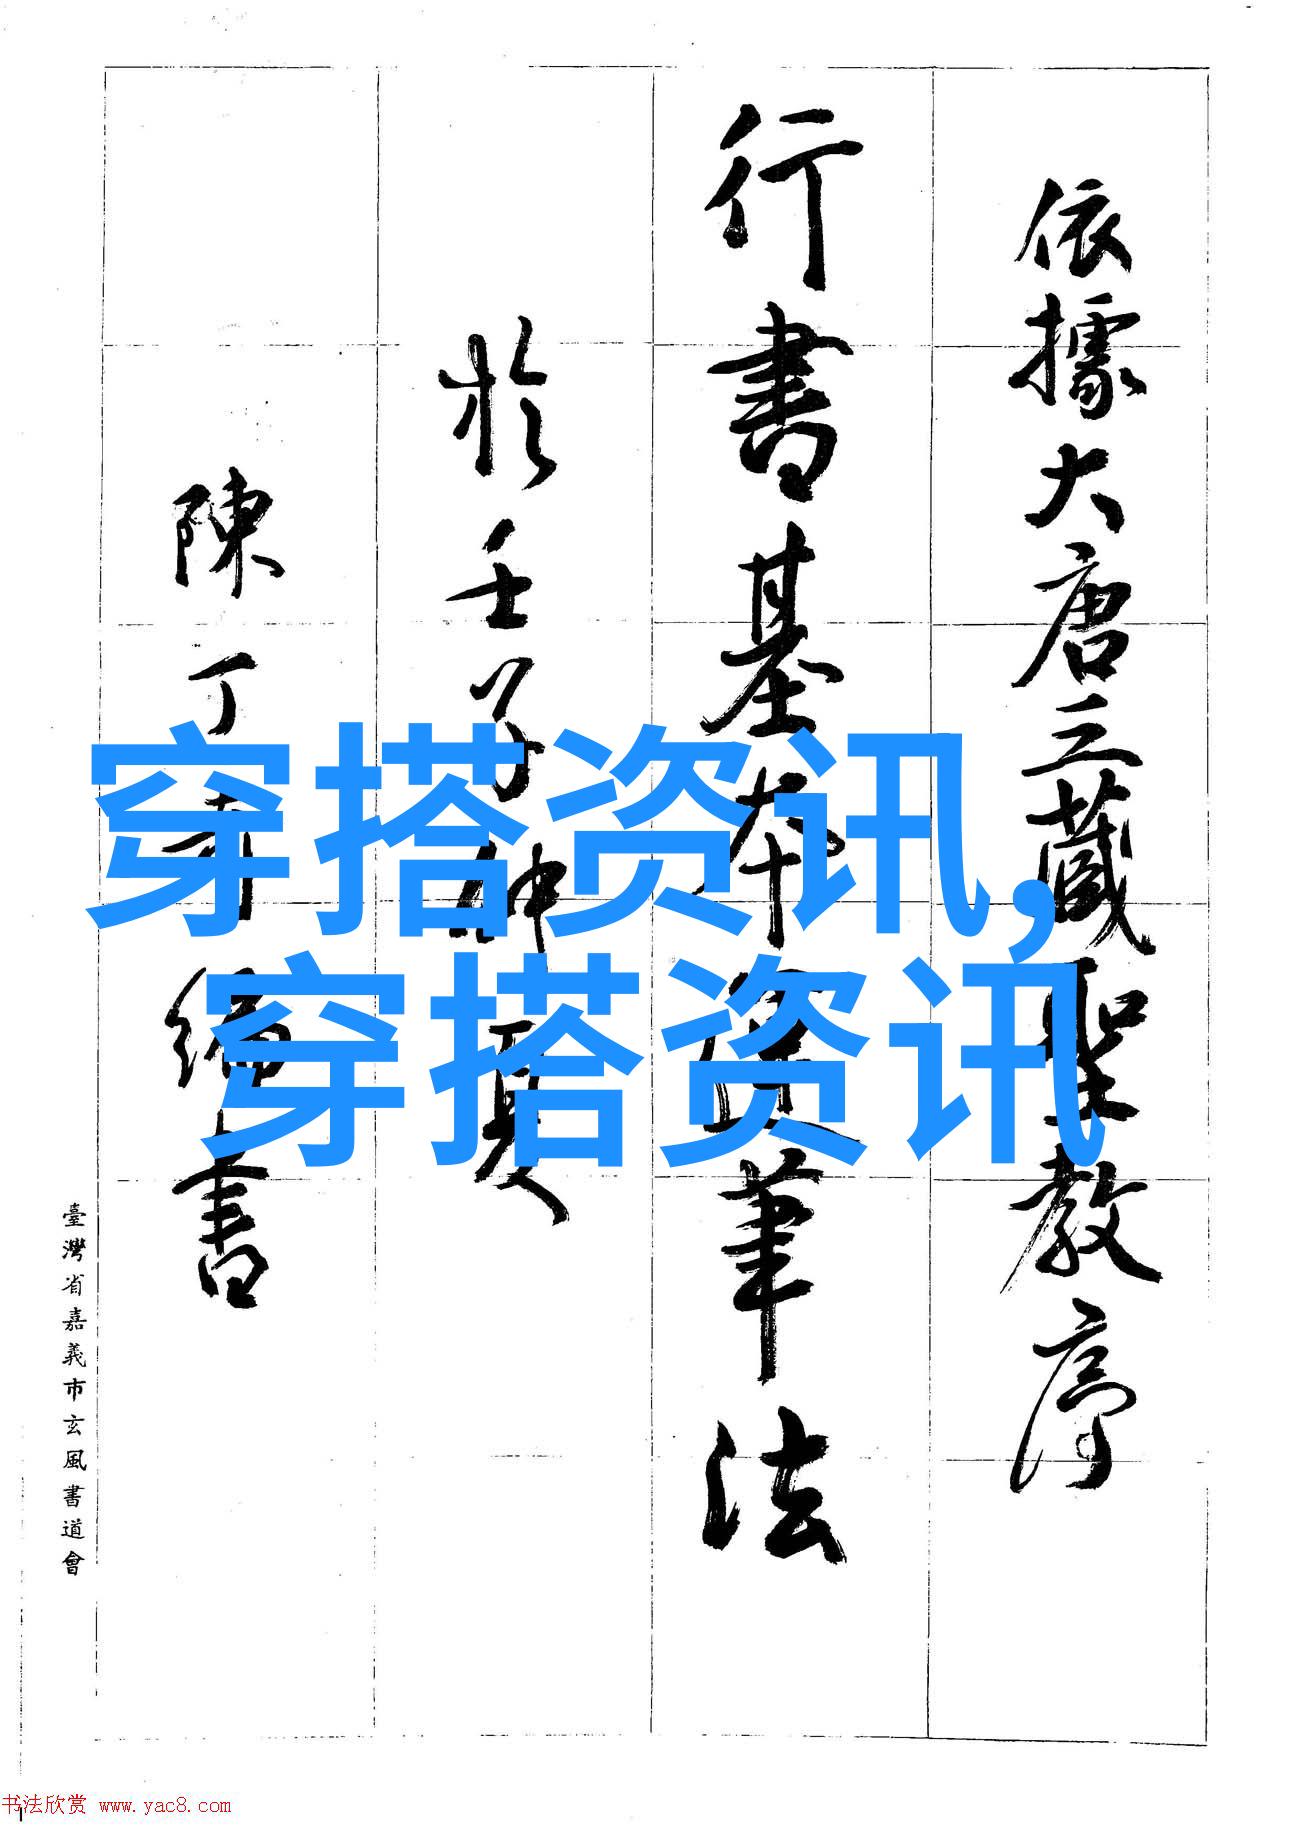 依據大唐三藏聖教序
行書基本運筆法
於壬子仲夏
陳丁奇編書
臺灣省嘉義市玄風書道會
穿搭资讯,
穿搭资讯
书法欣赏 www.yac8.com